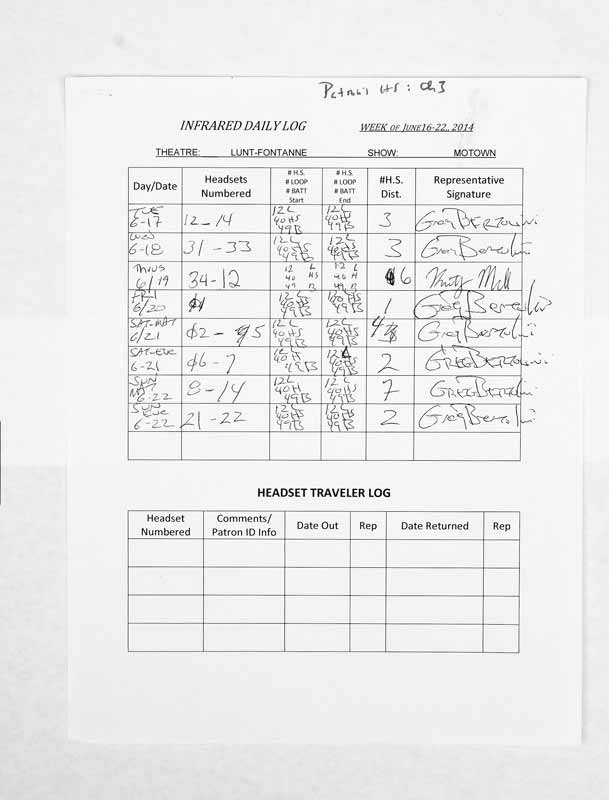 Patron HS: Ch3
INFRARED DAILY LOG WEEK OF JUNE16-22, 2014
THEATRE: LUNT-FONTANNE SHOW: MOTOWN
Day/Date Headsets Numbered # H.S. # LOOP # BATT Start # H.S. # LOOP # BATT End #H.S. Dist. Representative Signature
TUE 6-17 12-14 12L 40HS 49B 12L 40HS 49B 3 Greg BERTOLINI
WED 6-18 31-33 12L 40HS 49B 12L 40HS 49B 3 Greg Bertolini
THURS 6/19 34-12 12 L 40 HS 49 B 12 L 40 H 49 B 6
FRI 6/20 12L 40HS 49B 12L 40HS 49B 1 Greg Bertolini
SAT-MAT 6/21 02-05 12L 40HS 49B 12L 40HS 49B 4 Greg Bertolini
SAT-EVE 6-21 06-7 12L 40H 49B 12L 40H 49B 2 GREG BERTOLINI
SUN MAT 6-22 8-14 12L 40H 49B 12L 40HS 49B 7 GREG BERTOLINI
SUN EVE 6-22 21-22 12L 40HS 49B 12L 40HS 49B 2 Greg Bertolini
HEADSET TRAVELER LOG
Headset Numbered Comments/ Patron ID Info Date Out Rep Date Returned Rep